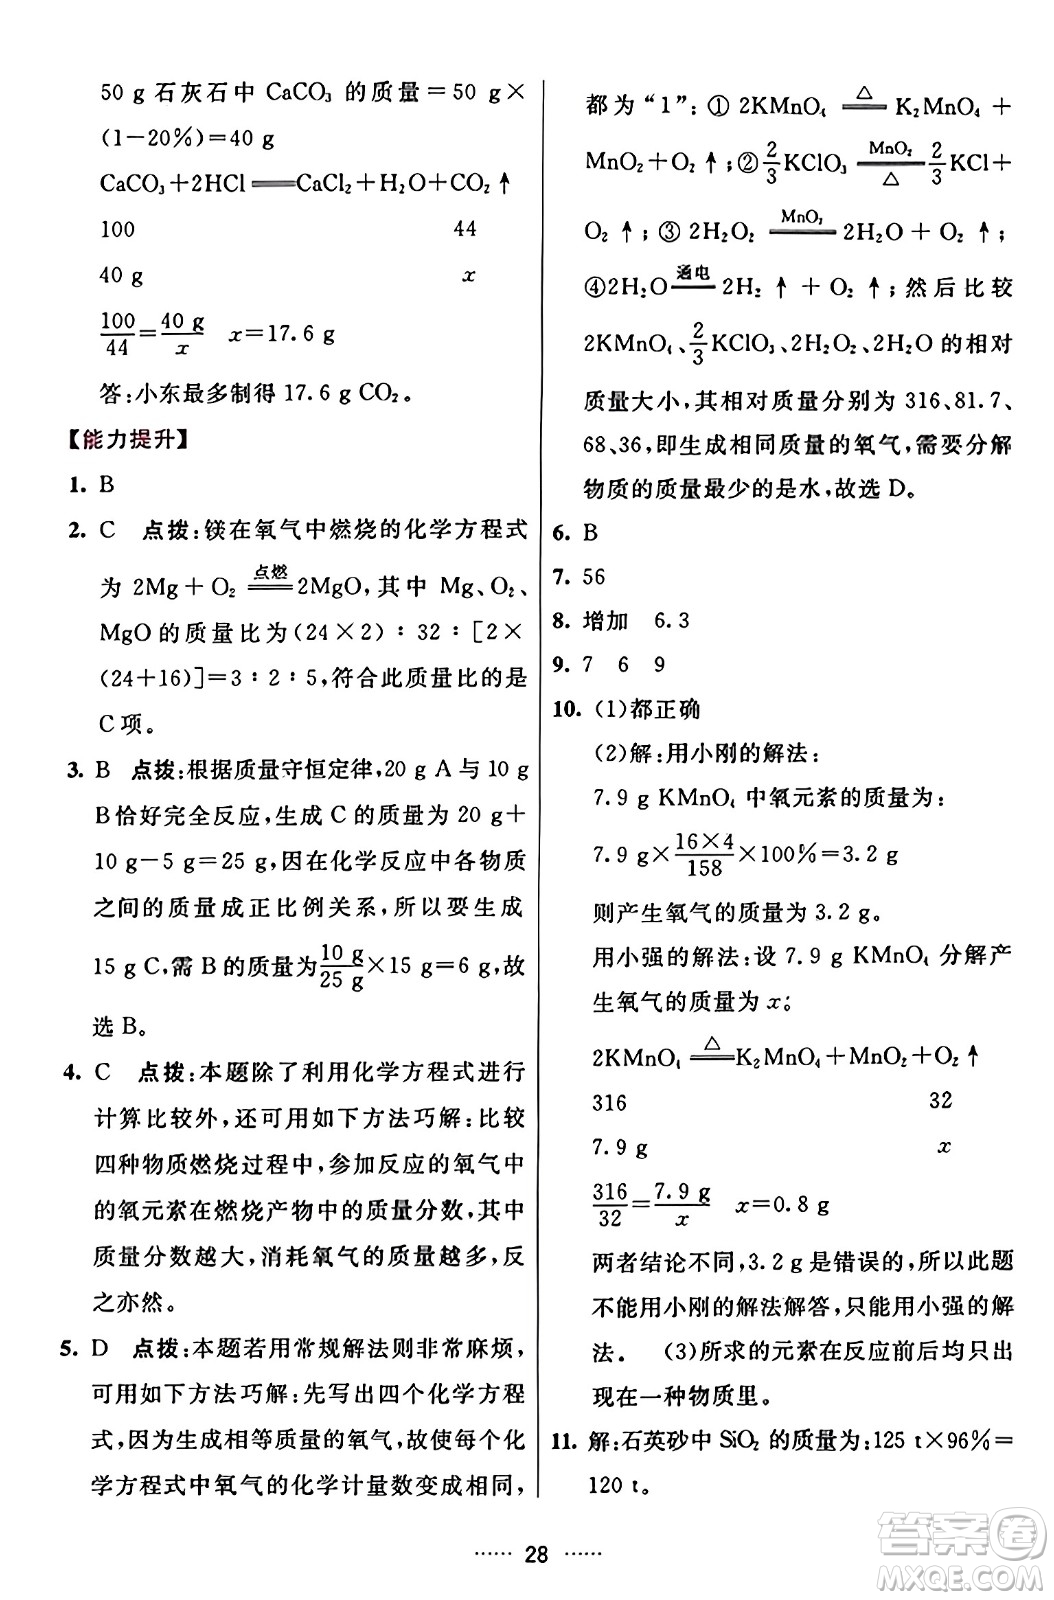 50 g石灰石中 CaCO₃ 的质量＝50 g×
(1－20%)＝40 g
CaCO₃＋2HCl═══CaCl₂＋H₂O＋CO₂↑
100 44
40 g x
100/44＝40 g/x x＝17.6 g
答:小东最多制得 17.6 g CO₂。
【能力提升】
1. B
2. C 点拨:镁在氧气中燃烧的化学方程式
为 2Mg＋O₂ ══点燃══ 2MgO,其中 Mg、O₂、
MgO的质量比为(24×2)∶32∶[2×
(24＋16)]＝3∶2∶5,符合此质量比的是
C项。
3. B 点拨:根据质量守恒定律,20 g A 与 10 g
B恰好完全反应,生成 C 的质量为 20 g＋
10 g－5 g＝25 g,因在化学反应中各物质
之间的质量成正比例关系,所以要生成
15 g C,需 B 的质量为10 g/25 g×15 g＝6 g,故
选 B。
4. C 点拨:本题除了利用化学方程式进行
计算比较外,还可用如下方法巧解:比较
四种物质燃烧过程中,参加反应的氧气中
的氧元素在燃烧产物中的质量分数,其中
质量分数越大,消耗氧气的质量越多,反
之亦然。
5. D 点拨:本题若用常规解法则非常麻烦,
可用如下方法巧解:先写出四个化学方程
式,因为生成相等质量的氧气,故使每个化
学方程式中氧气的化学计量数变成相同,
都为“1”:① 2KMnO₄ ══△══ K₂MnO₄＋
MnO₂＋O₂↑;②2/3KClO₃ ══MnO₂/△══ 2/3KCl＋
O₂↑;③2H₂O₂ ══MnO₂══ 2H₂O＋O₂↑;
④2H₂O══通电══2H₂↑＋O₂↑;然后比较
2KMnO₄、2/3KClO₃、2H₂O₂、2H₂O 的相对
质量大小,其相对质量分别为 316、81.7、
68、36,即生成相同质量的氧气,需要分解
物质的质量最少的是水,故选 D。
6. B
7. 56
8. 增加 6.3
9. 7 6 9
10. (1)都正确
(2)解:用小刚的解法:
7.9 g KMnO₄ 中氧元素的质量为:
7.9 g×16×4/158×100%＝3.2 g
则产生氧气的质量为 3.2 g。
用小强的解法:设 7.9 g KMnO₄ 分解产
生氧气的质量为 x。
2KMnO₄ ══△══ K₂MnO₄＋MnO₂＋O₂↑
316 32
7.9 g x
316/32＝7.9 g/x x＝0.8 g
两者结论不同,3.2 g是错误的,所以此题
不能用小刚的解法解答,只能用小强的解
法. (3)所求的元素在反应前后均只出
现在一种物质里。
11. 解:石英砂中 SiO₂ 的质量为:125 t×96%＝
120 t。
······ 28 ······
答案圈
MXQE.COM